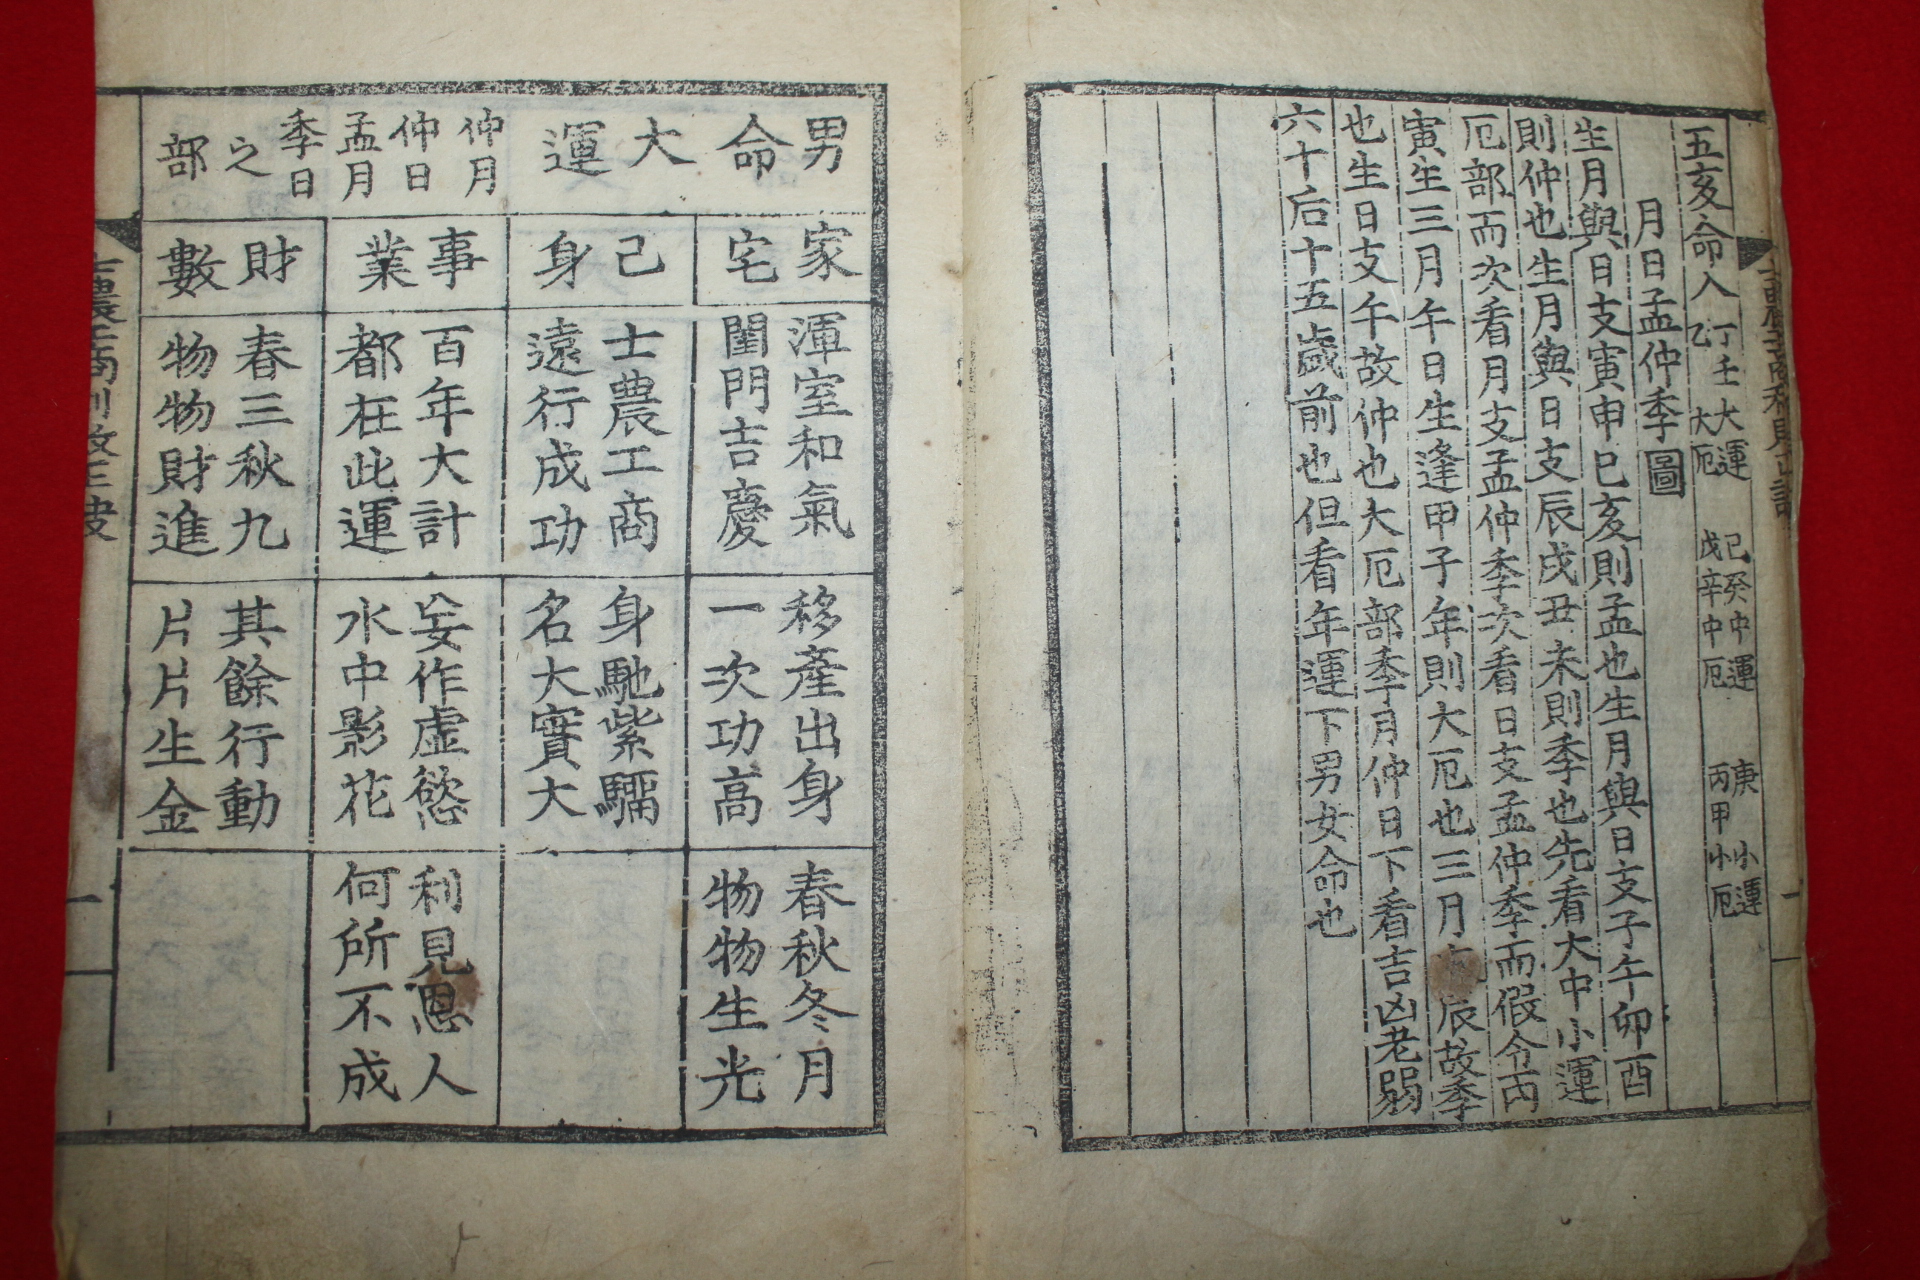 五亥命入 丁壬大運 己癸中運 庚小運
乙大厄 戊辛中厄 丙甲小厄
月日孟仲季圖
生月與日支寅申巳亥則孟也生月與日支子午卯酉
則仲也生月與日支辰戌丑未則季也先看大中小運
厄部而次看月支孟仲季次看日支孟仲季而假令丙
寅生三月午日生逢甲子年則大厄也三月辰故季
也生日支午故仲也大厄部季月仲日下看吉凶老弱
六十后十五歲前也但看年運下男女命也
一
男命
大運
仲月
仲日
孟月
季日
之部
家宅
渾室和氣
閨門吉慶
移產出身
一次功高
春秋冬月
物物生光
己身
士農工商
遠行成功
身馳紫騮
名大實大
事業
百年大計
都在此運
妄作虛慾
水中影花
利見恩人
何所不成
財數
春三秋九
物物財進
其餘行動
片片生金
一